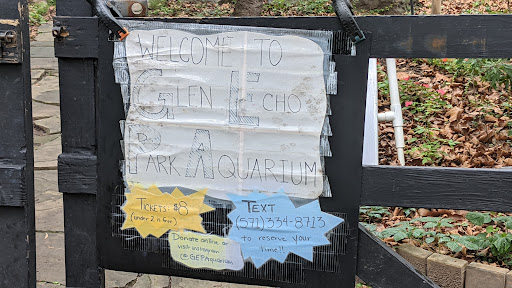 WELCOME TO
GLEN ECHO
PARK AQUARIUM
TICKETS: $8
(under 2 is free)
TEXT
(571) 334-8713
to reserve your
time!!
Donate online or
visit instagram
@GEPAquarium